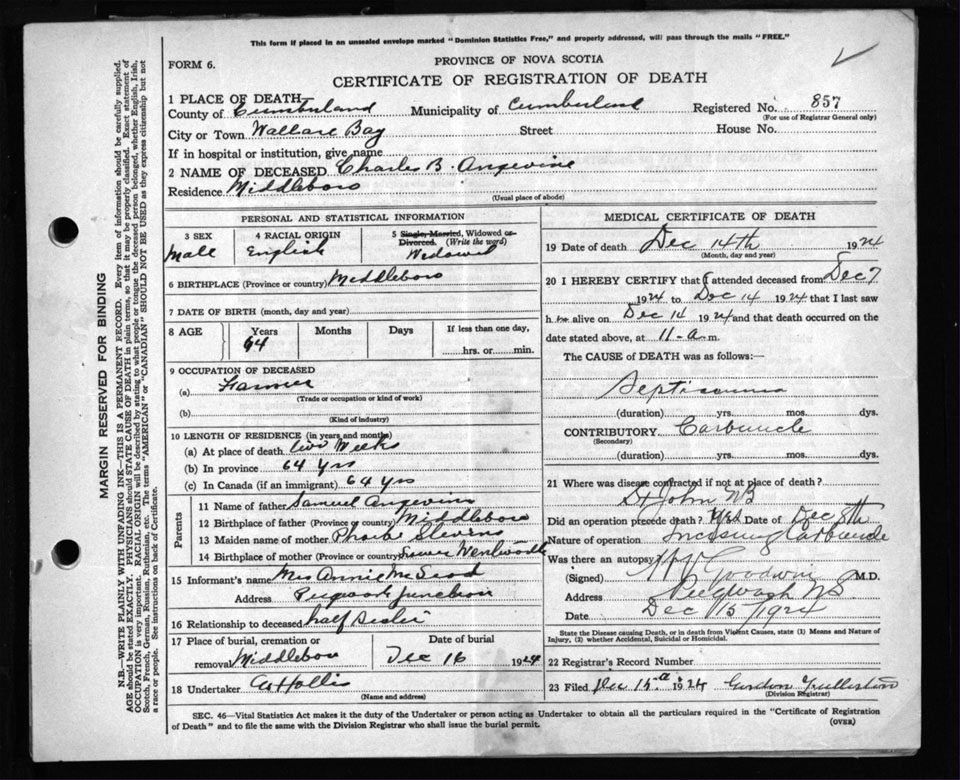 This form if placed in an unsealed envelope marked "Dominion Statistics Free," and properly addressed, will pass through the mails "FREE."
FORM 6.
PROVINCE OF NOVA SCOTIA
CERTIFICATE OF REGISTRATION OF DEATH
1 PLACE OF DEATH
County of Cumberland Municipality of Cumberland Registered No. 857
(For use of Registrar General only)
City or Town Wallace Bay Street House No.
If in hospital or institution, give name
2 NAME OF DECEASED Charles B. Angevine
Residence Middleboro
(Usual place of abode)
PERSONAL AND STATISTICAL INFORMATION
3 SEX
Male
4 RACIAL ORIGIN
English
5 Single, Married, Widowed or
Divorced. (Write the word)
Widowed
6 BIRTHPLACE (Province or country) Middleboro
7 DATE OF BIRTH (month, day and year)
8 AGE Years Months Days If less than one day,
64 hrs. or min.
9 OCCUPATION OF DECEASED
(a) Farmer
(Trade or occupation or kind of work)
(b)
(Kind of industry)
10 LENGTH OF RESIDENCE (in years and months)
(a) At place of death two Weeks
(b) In province 64 Yrs
(c) In Canada (if an immigrant) 64 Yrs
Parents
11 Name of father Samuel Angevine
12 Birthplace of father (Province or country) Middleboro
13 Maiden name of mother Phoebe Stevens
14 Birthplace of mother (Province or country) Lower Wentworth
15 Informant's name Mrs Annie McLeod
Address Pugwash Junction
16 Relationship to deceased half Sister
17 Place of burial, cremation or
removal Middleboro
Date of burial
Dec 16 1924
18 Undertaker Hollis
(Name and address)
MEDICAL CERTIFICATE OF DEATH
19 Date of death Dec 14th 1924
(Month, day and year)
20 I HEREBY CERTIFY that I attended deceased from Dec 7
1924 to Dec 14 1924 that I last saw
h im alive on Dec 14 1924 and that death occurred on the
date stated above, at 11-a m.
The CAUSE of DEATH was as follows:
Septicemia
(duration) yrs. mos. dys.
CONTRIBUTORY Carbuncle
(Secondary)
(duration) yrs. mos. dys.
21 Where was disease contracted if not at place of death?
St John NB
Did an operation precede death? Yes Date of Dec 8th
Nature of operation Incising Carbuncle
Was there an autopsy?
(Signed) Goodwin M.D.
Address Pugwash NS
Date Dec 15/1924
State the Disease causing Death, or in death from Violent Causes, state (1) Means and Nature of
Injury, (2) whether Accidental, Suicidal or Homicidal.
22 Registrar's Record Number
23 Filed Dec 15 1924 Gordon Fullerton
(Division Registrar)
SEC. 46—Vital Statistics Act makes it the duty of the Undertaker or person acting as Undertaker to obtain all the particulars required in the "Certificate of Registration
of Death" and to file the same with the Division Registrar who shall issue the burial permit.
(OVER)
MARGIN RESERVED FOR BINDING
N.B.—WRITE PLAINLY WITH UNFADING INK—THIS IS A PERMANENT RECORD. Every item of information should be carefully supplied.
AGE should be stated EXACTLY. PHYSICIANS should STATE CAUSE OF DEATH in plain terms, so that it may be properly classified. Exact statement of
OCCUPATION is very important. RACIAL ORIGIN will be described by stating to what people or tongue the deceased person belonged, whether English, Irish,
Scotch, French, German, Russian, Ruthenian, etc. The terms "AMERICAN" or "CANADIAN" SHOULD NOT BE USED as they express citizenship but not
a race or people. See instructions on back of Certificate.